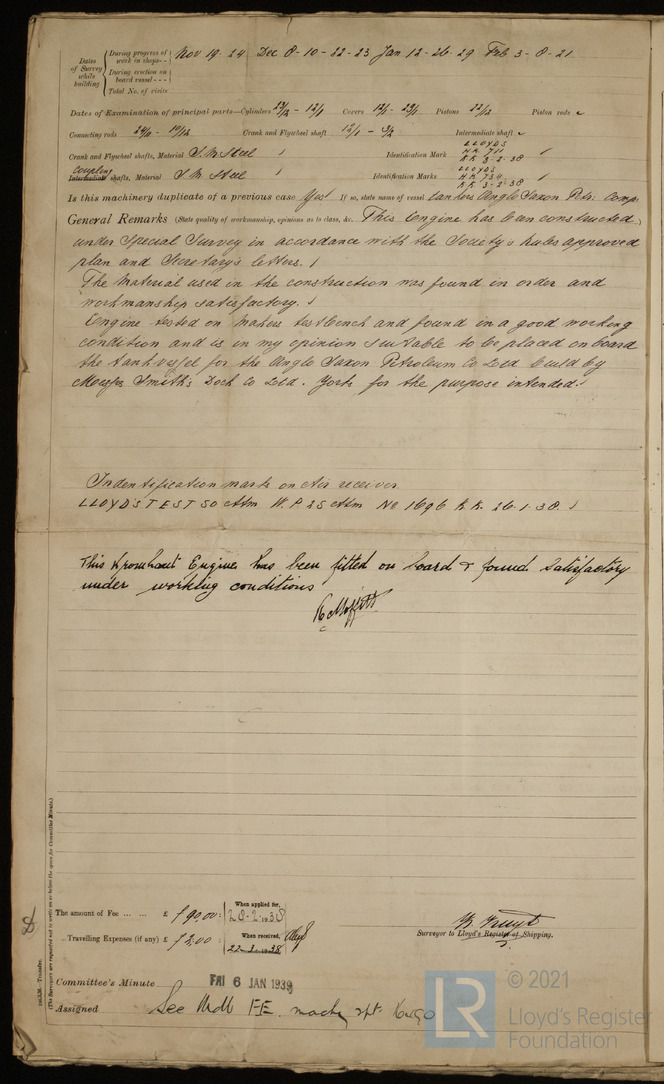 Dates of Survey while building
During progress of work in shops - - Nov 19. 24 Dec 8 - 10 - 22 - 23 Jan 12 - 26 - 29 Feb 3 - 8 - 21
During erection on board vessel - - -
Total No. of visits
Dates of Examination of principal parts—Cylinders 12/1 Covers 12/1 - Pistons Piston rods
Connecting rods Crank and Flywheel shaft 12/1 - 3/2 Intermediate shaft
Crank and Flywheel shafts, Material S.M. Steel Identification Mark LLOYDS KK 3-2-38
Coupling
Intermediate shafts, Material S.M Steel Identification Marks LLOYDS KK 3-2-38
Is this machinery duplicate of a previous case Yes If so, state name of vessel tankers Anglo Saxon Petr: Comp:
General Remarks (State quality of workmanship, opinions as to class, &c. This Engine has been constructed
under Special Survey in accordance with the Society's Rules approved
plan and Secretary's letters.
The Material used in the construction was found in order and
workmanship satisfactory.
Engine tested on Makers testbench and found in a good working
condition and is in my opinion suitable to be placed on board
the tankvessel for the Anglo Saxon Petroleum Co Ltd build by
Messrs Smith's Dock Co Ltd. for the purpose intended.
Indentification mark on Air receiver
LLOYD'S TEST 50 Atm W.P 25 Atm No 1696 K.K. 26.1.38
This Kromhout Engine has been fitted on board & found satisfactory
under working conditions
R Moffitt
The amount of Fee ... ... £ f 90.00 : When applied for, 28.2.1938
Travelling Expenses (if any) £ f 2.00 : When received, 1938
Surveyor to Lloyd's Register of Shipping.
Committee's Minute FRI 6 JAN 1939
Assigned See FE. machy rpt.
(The Surveyors are requested not to write on or below the space for Committee's Minute.)
© 2021
LR
Lloyd's Register
Foundation